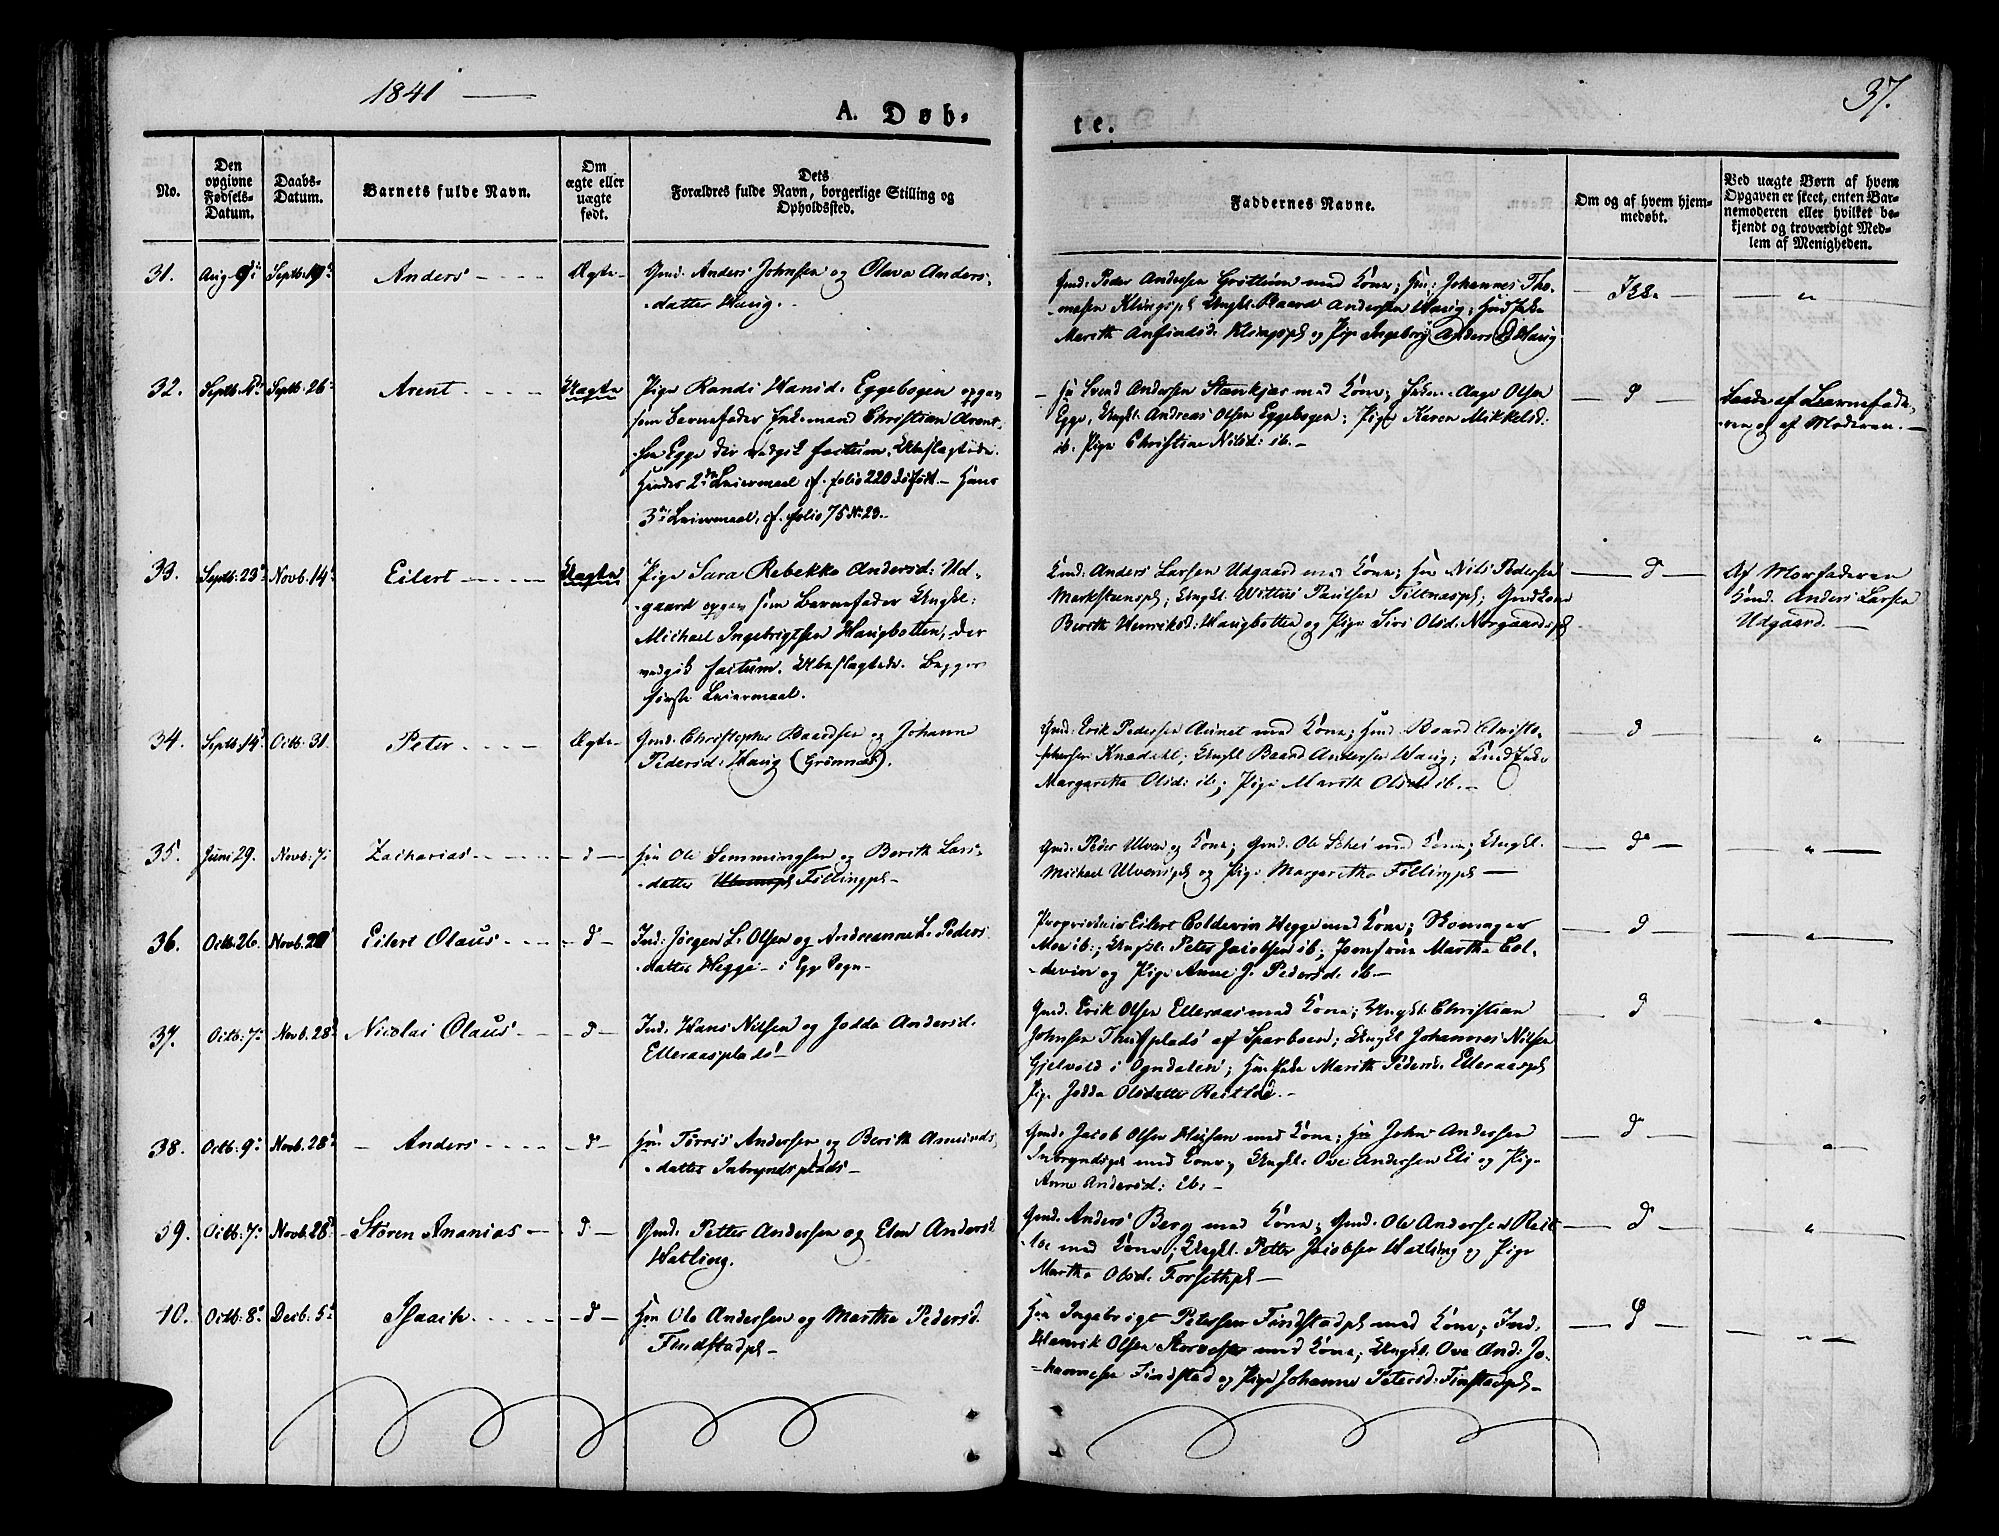 1841 —
37.
A. Døb-
te.
No.
Den opgivne Fødsels-Datum.
Daabs-Datum.
Barnets fulde Navn.
Om ægte eller uægte født.
Dets Forældres fulde Navn, borgerlige Stilling og Opholdssted.
Faddernes Navne.
Om og af hvem hjem-medøbt.
Ved uægte Børn af hvem Opgaven er skeet, enten Bar-nemoderen eller hvilket be-kjendt og troværdigt Med-lem af Menigheden.
31.
Septb: 19d
Anders
Ægte
Gmd. Anders Johnsen og Olava Anders-
datter Haug.
Gmd: Peder Andersen med Kone; Hm: Johannes Tho-
masen Klingspl. Ungkl. Baard Andersen Haug;
Marith Klingspl og Pige Ingeborg Andersd Haug
Ikke
"
32.
Septb:
Septb: 26d
Arent
Uægte
Pige Randi Hansd: Eggebogen opgav
som Barnefader Christian Arent-
sen Egge der vedgik factum. Ubeslægtede.
Hendes 2det Leiermaal cf. folio 220 Hans
3die Leiermaal, cf. folio 75 No 23.
Hm Svend Andersen med Kone; Aage Olsen
Egge, Ungkl. Andreas Olsen Eggebogen; Pige Karen Mikkelsd:
ib. Pige Christine Nilsd: ib. —
d
Baade af Barnefade-
ren og af Moderen. —
33.
Septb: 23d
Novb. 14d
Eilert
Uægte
Pige Sara Rebekka Andersd: Ud-
gaard opgav som Barnefader Ungkl:
Michael Ingebrigtsen Haugbotten, der
vedgik factum. Ubeslægtede. Begges
første Leiermaal.
Gmd. Anders Larsen Udgaard med Kone; Hm Nils Pedersen
Marksteenspl; Ungkl. Paulsen Gmdkone
Berith Henriksd: Haugbotten og Pige Siri Olsd: Norgaardspl
d
Af Morfaderen
Gmd. Anders Larsen
Udgaard. —
34.
Septb: 14d
Octb: 31.
Peter
Ægte
Gmd. Christopher Baardsen og Johanna
Pedersd: Haug (Grønnæs).
Gmd: Erik Pedersen Aunet med Kone; Gmd. Baard Christo-
phersen Knædahl; Ungkl Baard Andersen Haug;
Margaretha Olsd: ib; Pige Marith Olsd: ib. —
d
"
35.
Juni 29.
Novb: 7d
Zacharias
d
Hm Ole Semmingsen og Berith Lars-
datter Føllingpl —
Gmd: Peder Ulven og Kone; Gmd. Ole Schei med Kone; Ungkl.
Michael Ulvenspl og Pige Margaretha Føllingpl —
d
"
36.
Octb. 26.
Eilert Olaus
d
Ind: Jørgen L. Olsen og Andreanne L. Peders-
datter Hegge — i Egge Sogn —
Proprietair Eilert Coldevin Hegge med Kone; Skomager
Moe ib.; Ungkl. Peter Jacobsen ib; Jomfrue Martha Col-
devin og Pige Anne J. Pedersd: ib —
d
"
37.
Octb: 7d
Novb. 28d
Nicolai Olaus
d
Ind. Hans Nilsen og Jodda Andersd.
Elleraasplads —
Gmd. Erik Olsen Elleraas med Kone; Ungkl. Christian
Johnsen af Sparboen; Ungkl Johannes Nilsen
Gjelvold i Ogndalen; Marith Pedersd. Elleraaspl
Pige Jodda Olsdatter Reitloe. —
d
"
38.
Octb: 9d
Novb. 28d
Anders
d
Hm: Tørris Andersen og Berith Amunds-
datter Inbryndsplads —
Gmd. Jacob Olsen med Kone; Hm John Andersen
Inbryndspl med Kone; Ungkl. Ove Andersen Eli og Pige
Anne Andersd: ib: —
d
"
39.
Octb: 7d
Novb: 28d
Støren Ananias
d
Gmd. Petter Andersen og Elen Andersd.
Watling.
Gmd. Anders Berg med Kone; Gmd. Ole Andersen Reit-
loe med Kone; Ungkl. Petter Jacobsen Watling og Pige
Martha Olsd. Forsethpl —
d
"
40.
Octb: 8d
Decb. 5d
Isaack
d
Hm Ole Andersen og Martha Pedersd.
Findstadpl —
Hm Ingebrigt Petersen Findstadpl med Kone; Ind.
Henrik Olsen med Kone; Ungkl. Ove And: Jo-
hannesen Findstad og Pige Johanna Petersd: Finstadpl —
d
"